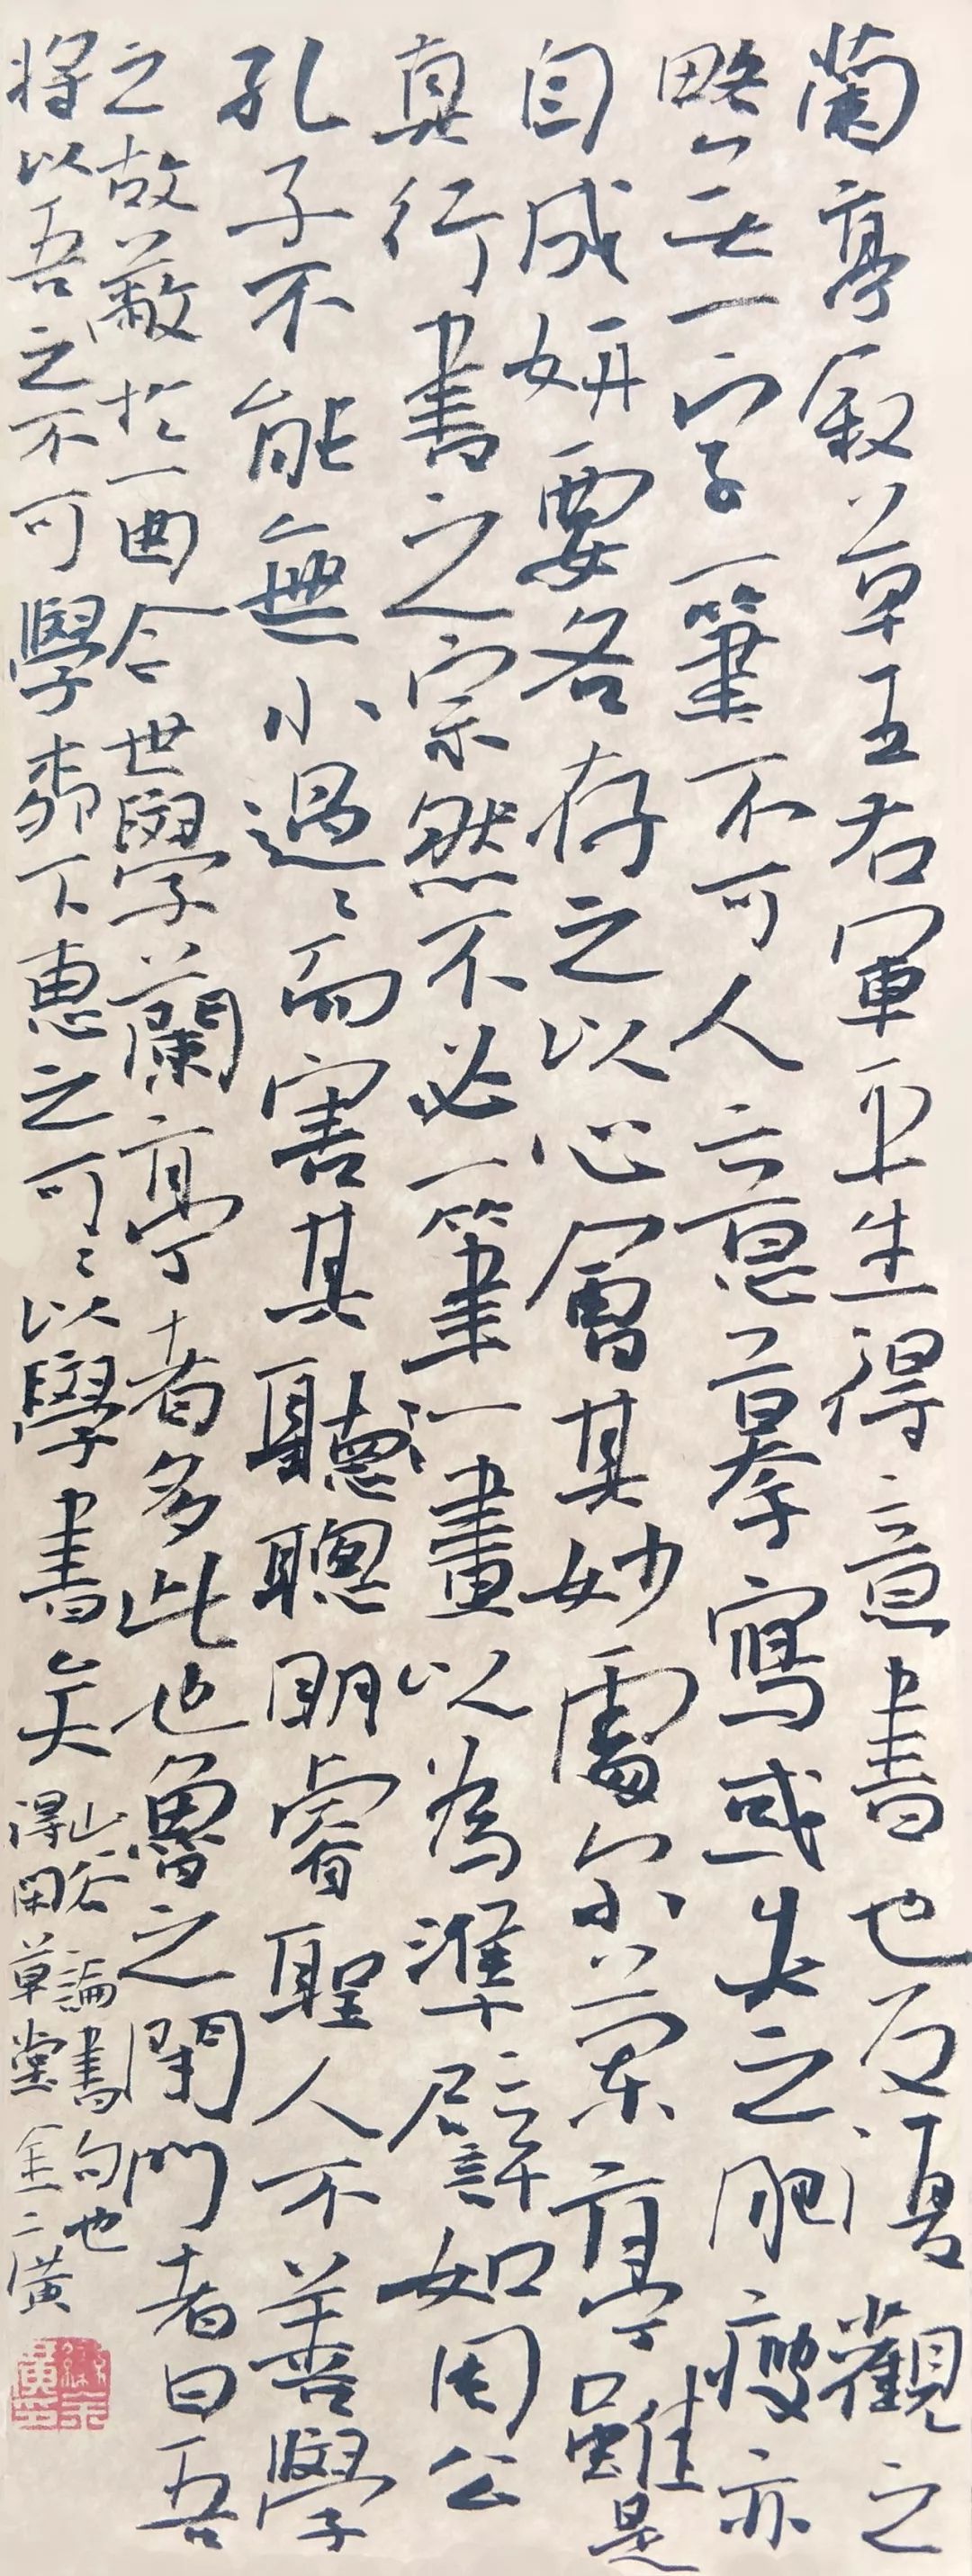 蘭亭敘草王右軍平生得意書也反復觀之
略無一字一筆不可人意摹寫或失之肥瘦亦
自成妍要各存之以心會其妙處尔蘭亭雖是
真行書之宗然不必一筆一畫以為準辟訴如周公
孔子不能無小過ミ而害其聽聰明睿聖人不善學
之故蔽於一曲今世學蘭亭者多此也魯之閉門者曰吾
將以吾之不可學柳下惠之可ミ以學書矣
山谷論書句也
得閑草堂金二黃